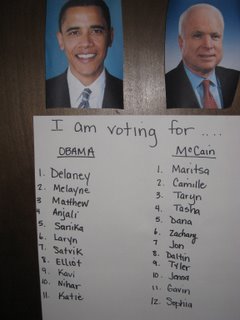 I am voting for ....
OBAMA
1. Delaney
2. Melayne
3 Matthew
4 Anjali
5. Sarika
6. Laryn
7. Satvik
8. Elliot
9. Kavi
10. Nihar
11. Katie
McCain
1. Maritsa
2. Camille
3. Taryn
4. Tasha
5. Dana
6. Zachary
7. Jon
8. Daltin
9. Tyler
10. Jenna
11. Gavin
12. Sophia